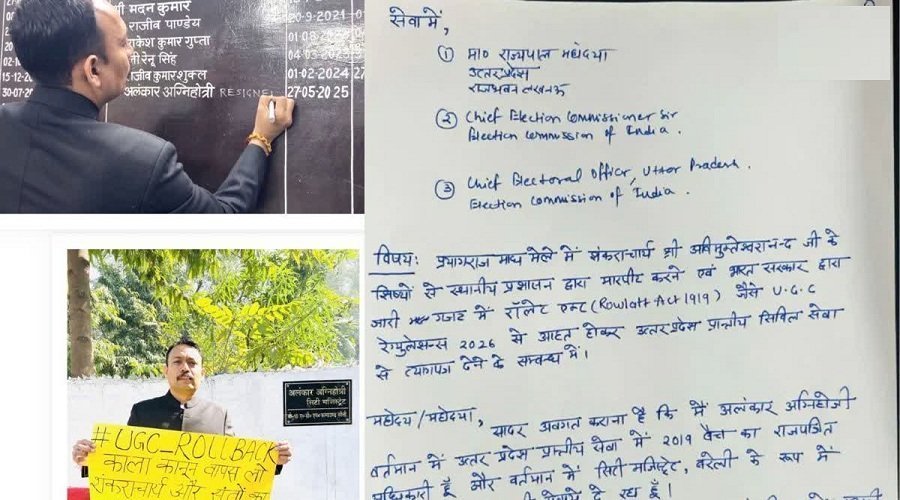 श्री मदन कुमार
राजीव पाण्डेय 20-9-2021
राकेश कुमार गुप्ता 01-08-
रेनू सिंह 04-03-
15-12- राजीव कुमार शुक्ल 01-02-2024
30-07- अलंकार अग्निहोत्री RESIGNE 27-05-2025
अलंकार अग्निहोत्री
सिटी मजिस्ट्रेट
#UGC_ROLLBACK
काला कानून वापस लो
शंकराचार्य और संतों का
सेवा में,
① मा० राज्यपाल महोदया
उत्तर प्रदेश
राजभवन लखनऊ
② Chief Election Commissioner Sir
Election Commission of India.
③ Chief Electoral Officer, Uttar Pradesh.
Election Commission of India.
विषय: प्रयागराज माघ मेले में शंकराचार्य श्री अविमुक्तेश्वरानन्द जी के
शिष्यों से स्थानीय प्रशासन द्वारा मारपीट करने एवं भारत सरकार द्वारा
जारी गजट में रॉलेट एक्ट (Rowlatt Act 1919) जैसे U.G.C
रेगुलेसन्स 2026 से आहत होकर उत्तर प्रदेश प्रान्तीय सिविल सेवा
से त्यागपत्र देने के सम्बन्ध में।
महोदय/महोदया,
सादर अवगत कराना है कि मैं अलंकार अग्निहोत्री
वर्तमान में उत्तर प्रदेश प्रान्तीय सेवा में 2019 बैच का राजपत्रित
अधिकारी हूँ और वर्तमान में सिटी मजिस्ट्रेट, बरेली के रूप में
दे रहा हूँ।